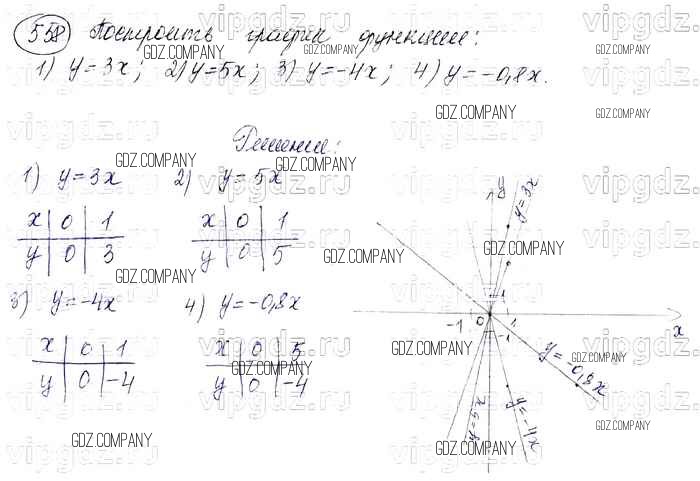 558 Построить график функции:
1) y=3x; 2) y=5x; 3) y=-4x; 4) y=-0,8x.
Решение:
1) y=3x 2) y=5x
x 0 1 x 0 1
y 0 3 y 0 5
3) y=-4x 4) y=-0,8x
x 0 1 x 0 5
y 0 -4 y 0 -4
y
y=3x
1
-1 0 1 x
-1
y=-0,8x
y=5x
y=-4x
GDZ.COMPANY
vipgdz.ru